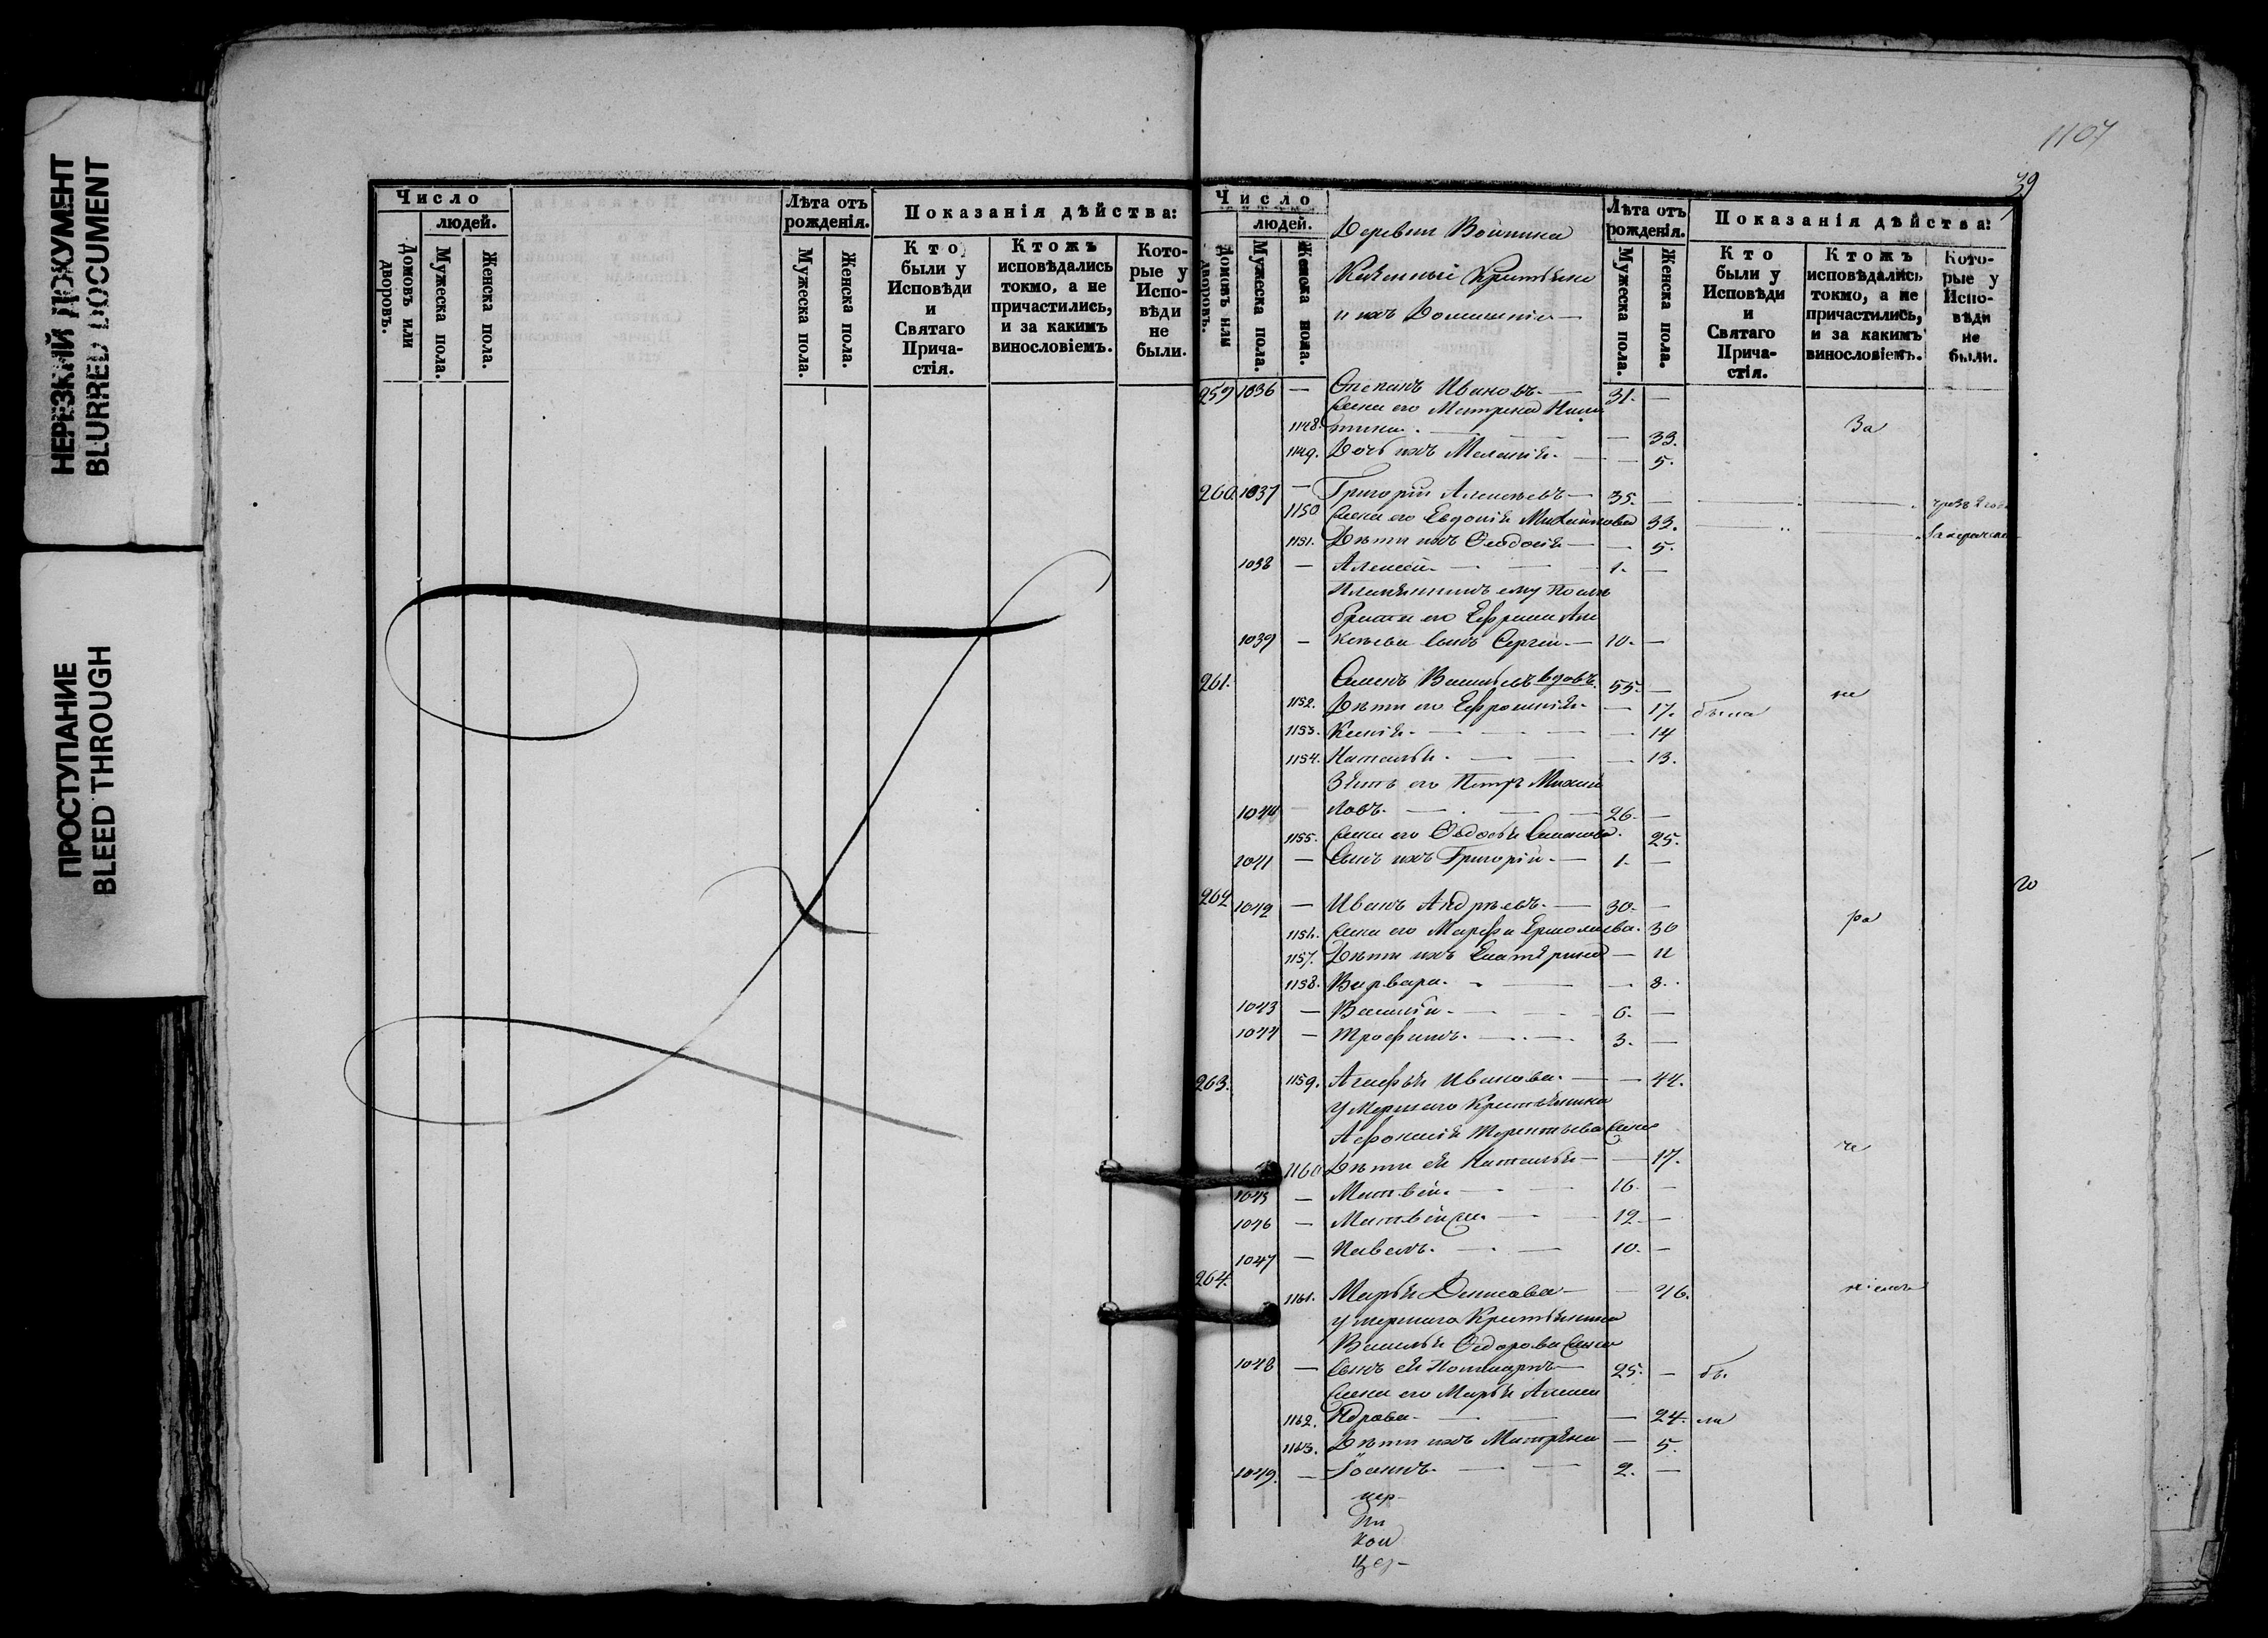 НЕРЕЗКИЙ ДОКУМЕНТ
BLURRED DOCUMENT
ПРОСТУПАНИЕ
BLEED THROUGH
Число
людей.
Домовъ или дворовъ.
Мужеска пола.
Женска пола.
Лѣта отъ рожденія.
Мужеска пола.
Женска пола.
Показанія дѣйства:
Кто были у Исповѣди и Святаго Прича-стія.
Ктожъ исповѣдались токмо, а не причастились, и за какимъ винословіемъ.
Кото-рые у Испо-вѣди не были.
1107
39
Число
людей.
Домовъ или дворовъ.
Мужеска пола.
Женска пола.
Деревни
и ихъ Домашніе
Лѣта отъ рожденія.
Мужеска пола.
Женска пола.
Показанія дѣйства:
Кто были у Исповѣди и Святаго Прича-стія.
Ктожъ исповѣдались токмо, а не причастились, и за какимъ винословіемъ.
Кото-рые у Испо-вѣди не были.
259 1036 — Степанъ Ивановъ. — 31. —
Жена его Матрена Ники
1148. тина. — 33. За
1149. Дочь ихъ Меланія. — 5.
260 1037 — Григорій Алексѣевъ — 35. —
1150 Жена его Евдокія Михайлова 33.
1151. Дѣти ихъ Ѳеодосія — 5.
1038 — Алексѣй. — 1. —
Племянникъ ему по
брата его Ефрема Але
1039 — ксѣева Сынъ Сергѣй. — 10. —
261. Семенъ Васильевъ вдовъ. 55. —
1152. Дѣти его Ефросинія. — 17. была
1153. Ксенія. — 14
1154. Наталья. — 13.
Зять его Петръ Михай
ловъ. — 26. —
1155. Жена его Ѳедосья Семенова. 25.
1041 — Сынъ ихъ Григорій. — 1. —
262 1042 — Иванъ Андрѣевъ. — 30. —
1156. Жена его Марфа Ермолаева. 30 ра
1157. Дѣти ихъ Екатерина — 11
1158. Варвара. — 8.
1043 — Василій. — 6. —
1044 — Трофимъ. — 3. —
263. 1159. Агафья Иванова. — 44.
Умершаго Крестьянина
Афонасія Терентьева Жена
1160 Дѣти ея Наталья — 17.
1045 — Матвѣй. — 16. —
1046 — Матвѣй — 12 —
1047 — Павелъ. — 10. —
264. 1161. Марья Денисова — 46.
умершаго Крестьянина
Василья Ѳедорова Жена
1048 — Сынъ ея — 25. — бы
Жена его Марья Алекса
1162. ндрова. — 24. ли
1163. Дѣти ихъ Матрена — 5.
1049. — Іоаннъ. — 2. —